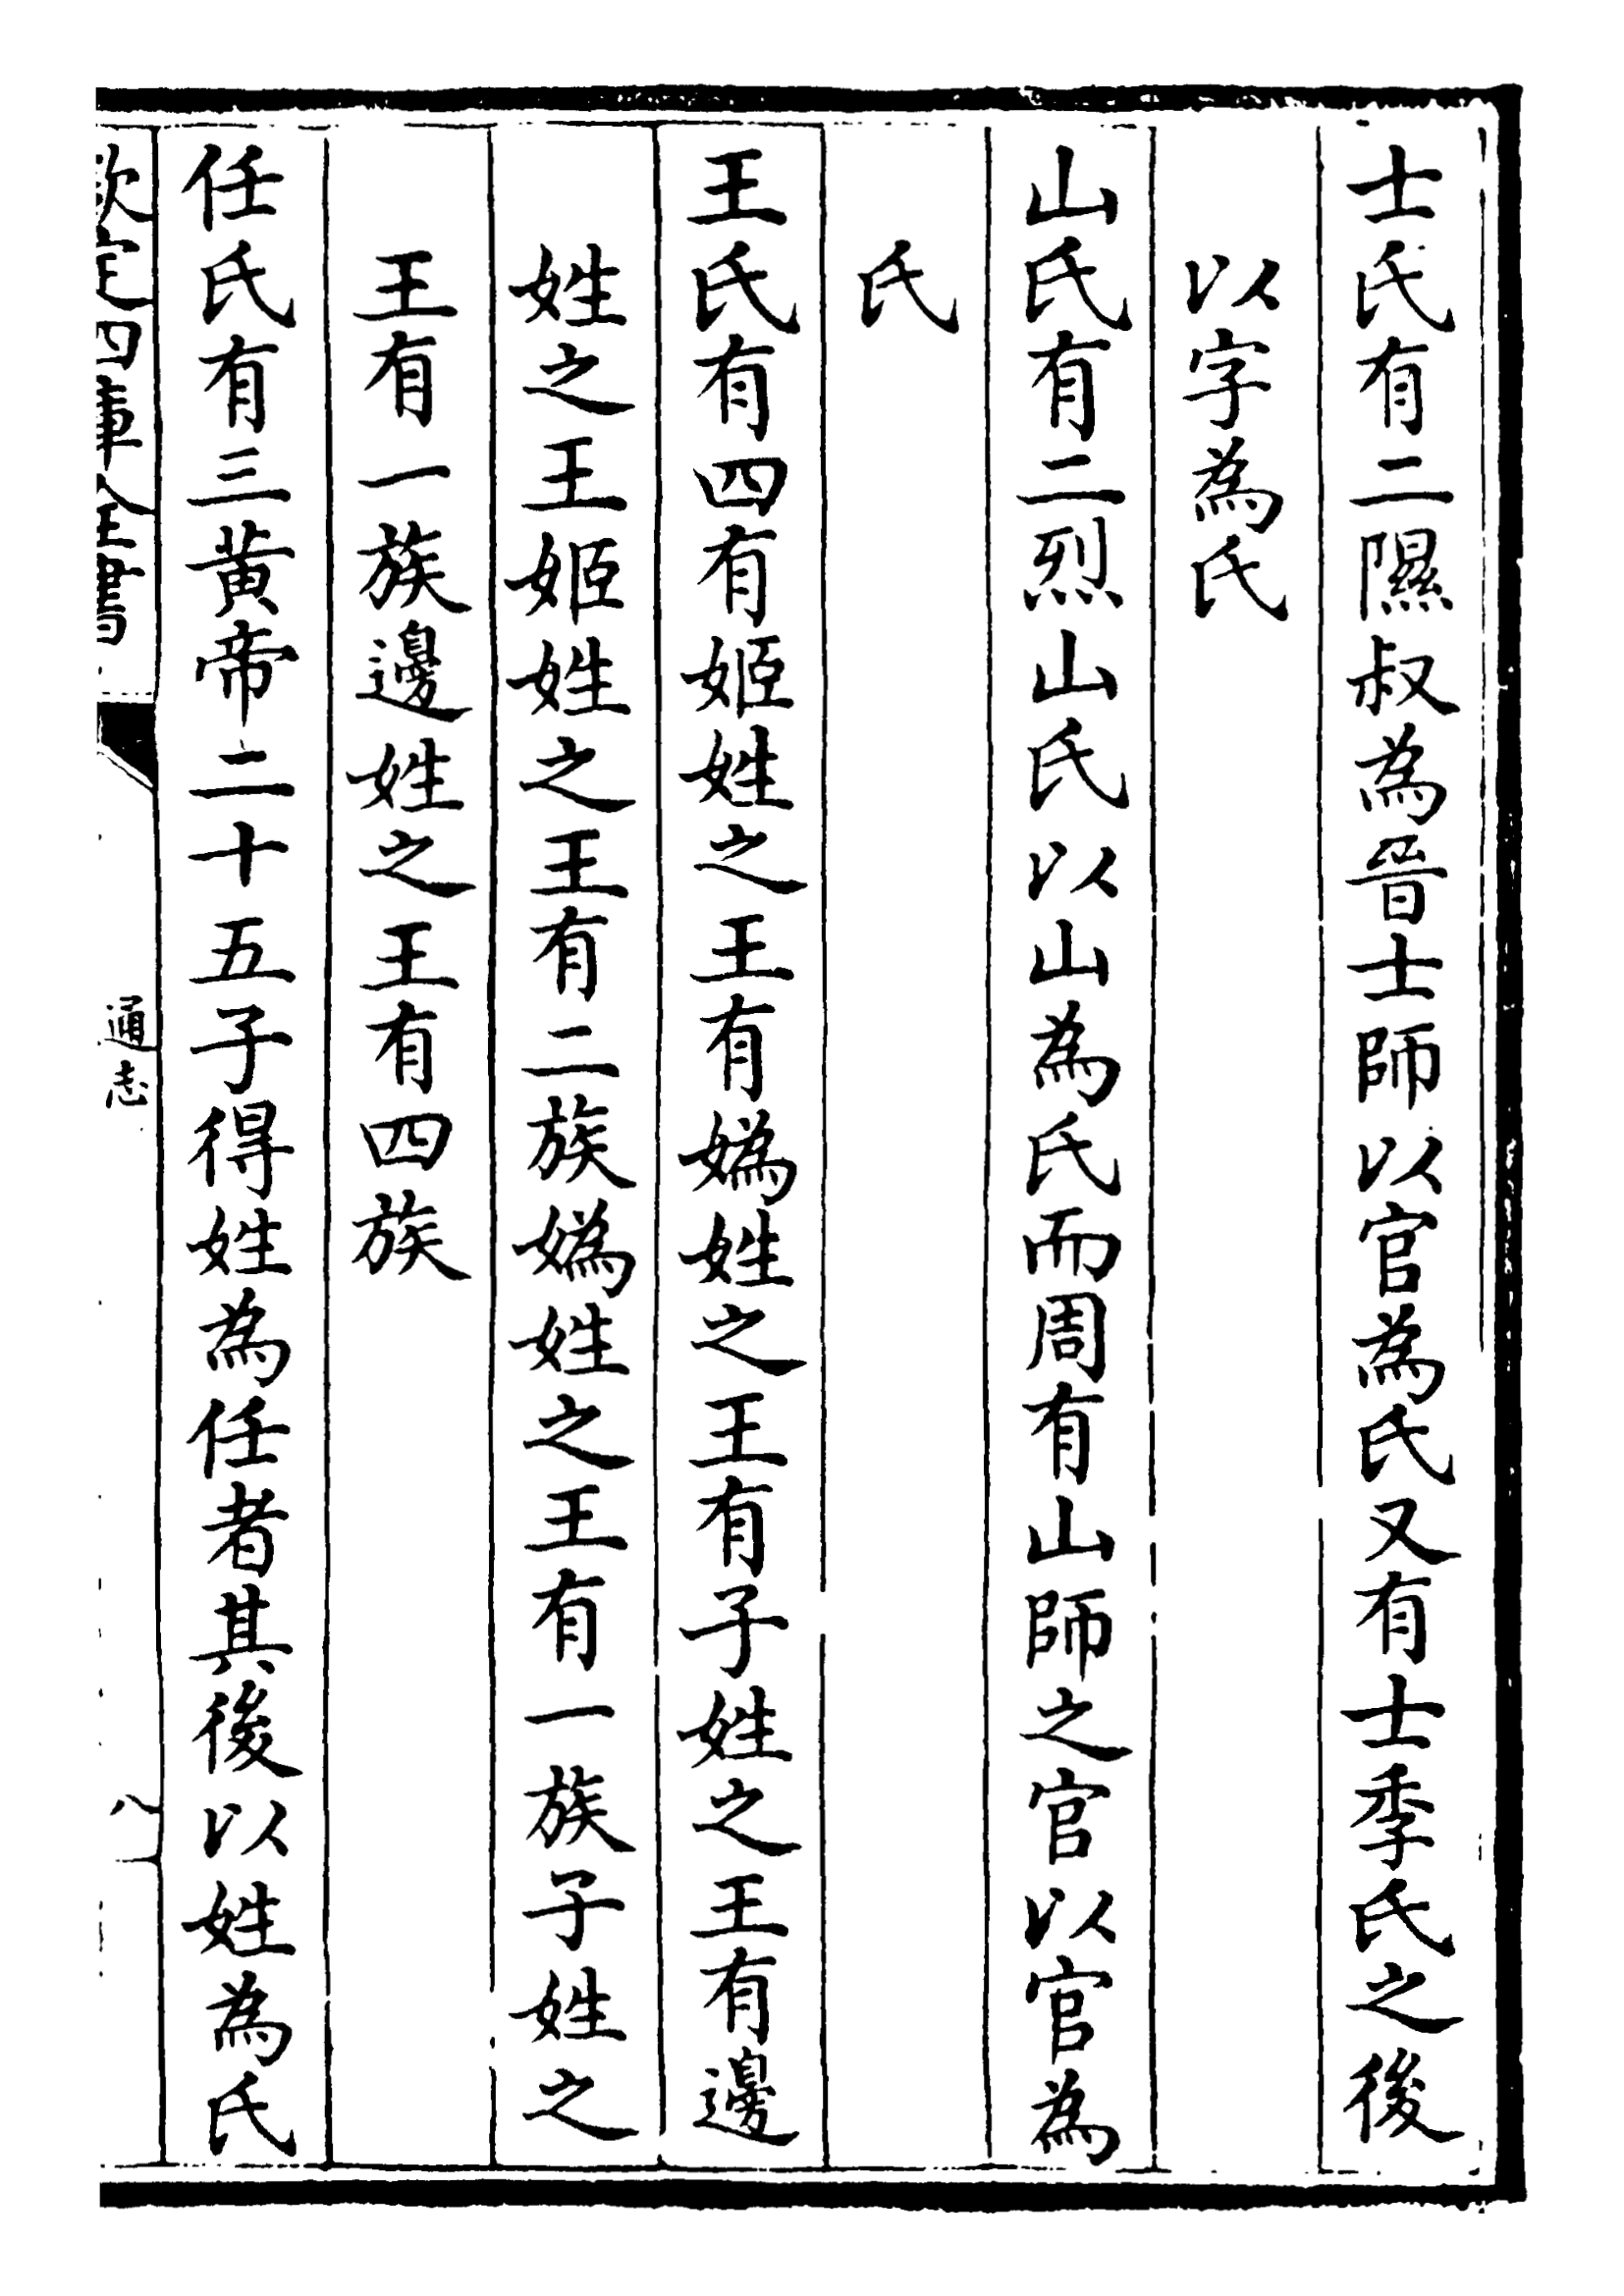 士氏有二隰叔為晉士師以官為氏又有士季氏之後
以字為氏
山氏有二烈山氏以山為氏而周有山師之官以官為
氏
王氏有四有姬姓之王有媯姓之王有子姓之王有邊
姓之王姬姓之王有二族媯姓之王有一族子姓之
王有一族邊姓之王有四族
任氏有三黃帝二十五子得姓為任者其後以姓為氏
欽定四庫全書
通志
八